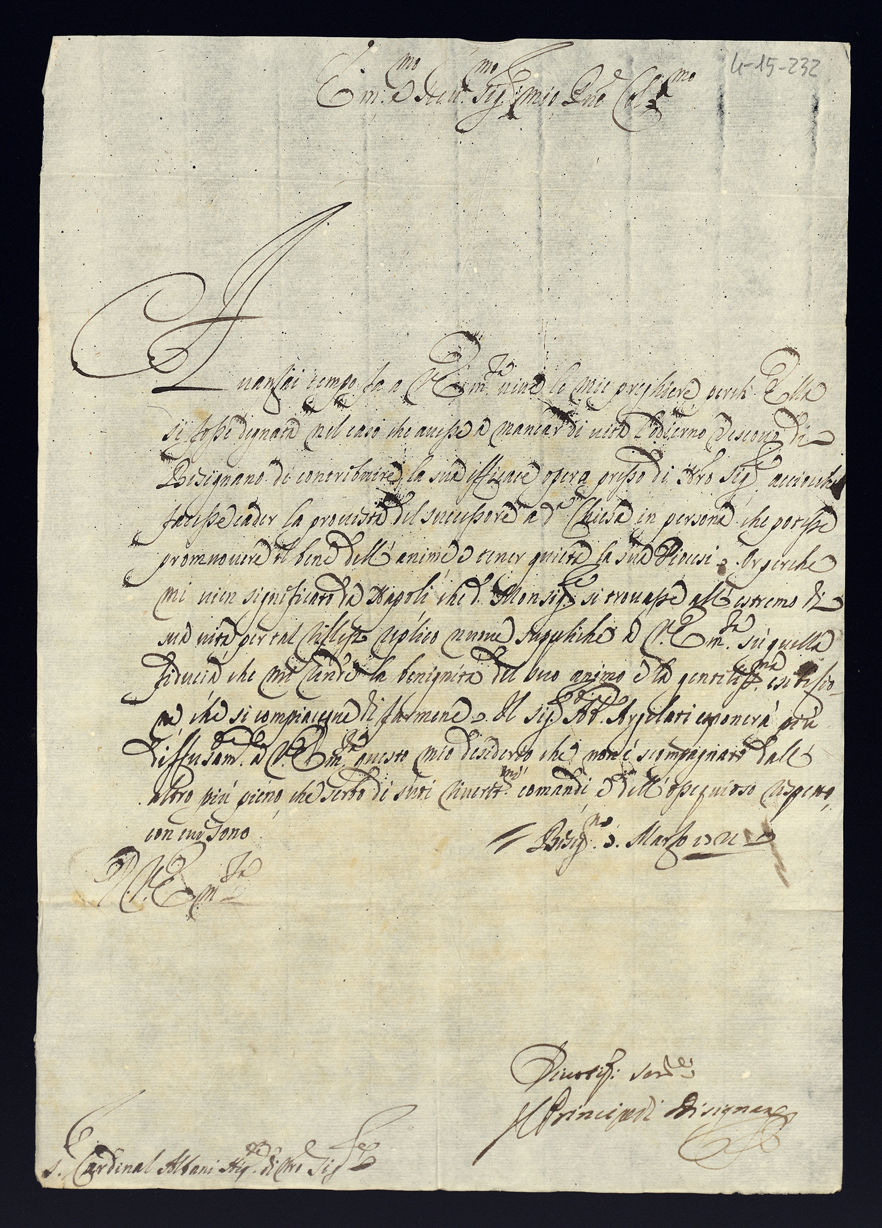 4-15-232
Em.mo e Reu.mo Sig.re mio P.ne Col.mo
Auanzai tempo fa a V. Em.za viue le mie preghiere, perche Ella
si fosse degnata nel caso che auesse à mancar di vita l'odierno Vescouo di
Bisignano di contribuire la sua efficace opera presso di N̄ro Sig.re acciochè
facesse cader la prouista del successore a d.a Chiesa in persona che potesse
promuouere il bene dell'anime e tener quieta la sua Diocesi. Or perche
mi vien significato da Napoli che d.o Monsig.re si trouasse all'estremo di
sua vita per tal replico nuoue suppliche a V. Em.za sù quella
fiducia che mi rende la benignità del suo animo e la gentiliss.ma esibizio-
ne che si compiacque di farmene. Il Sig.r Ab.e Argelati esponerà più
diffusam.te a V. Em.za questo mio desiderio che non è scompagnato dall'
altro più pieno, che serbo di suoi riueriti.mi comandi e dell'ossequioso rispetto,
con cui sono
Bisig.no 3. Marzo 1721
D. V. Em.za
Diuotiss. seru.e
Il Principe di Bisignano
S. Cardinal Albani Nip.e di N̄ro Sig.re